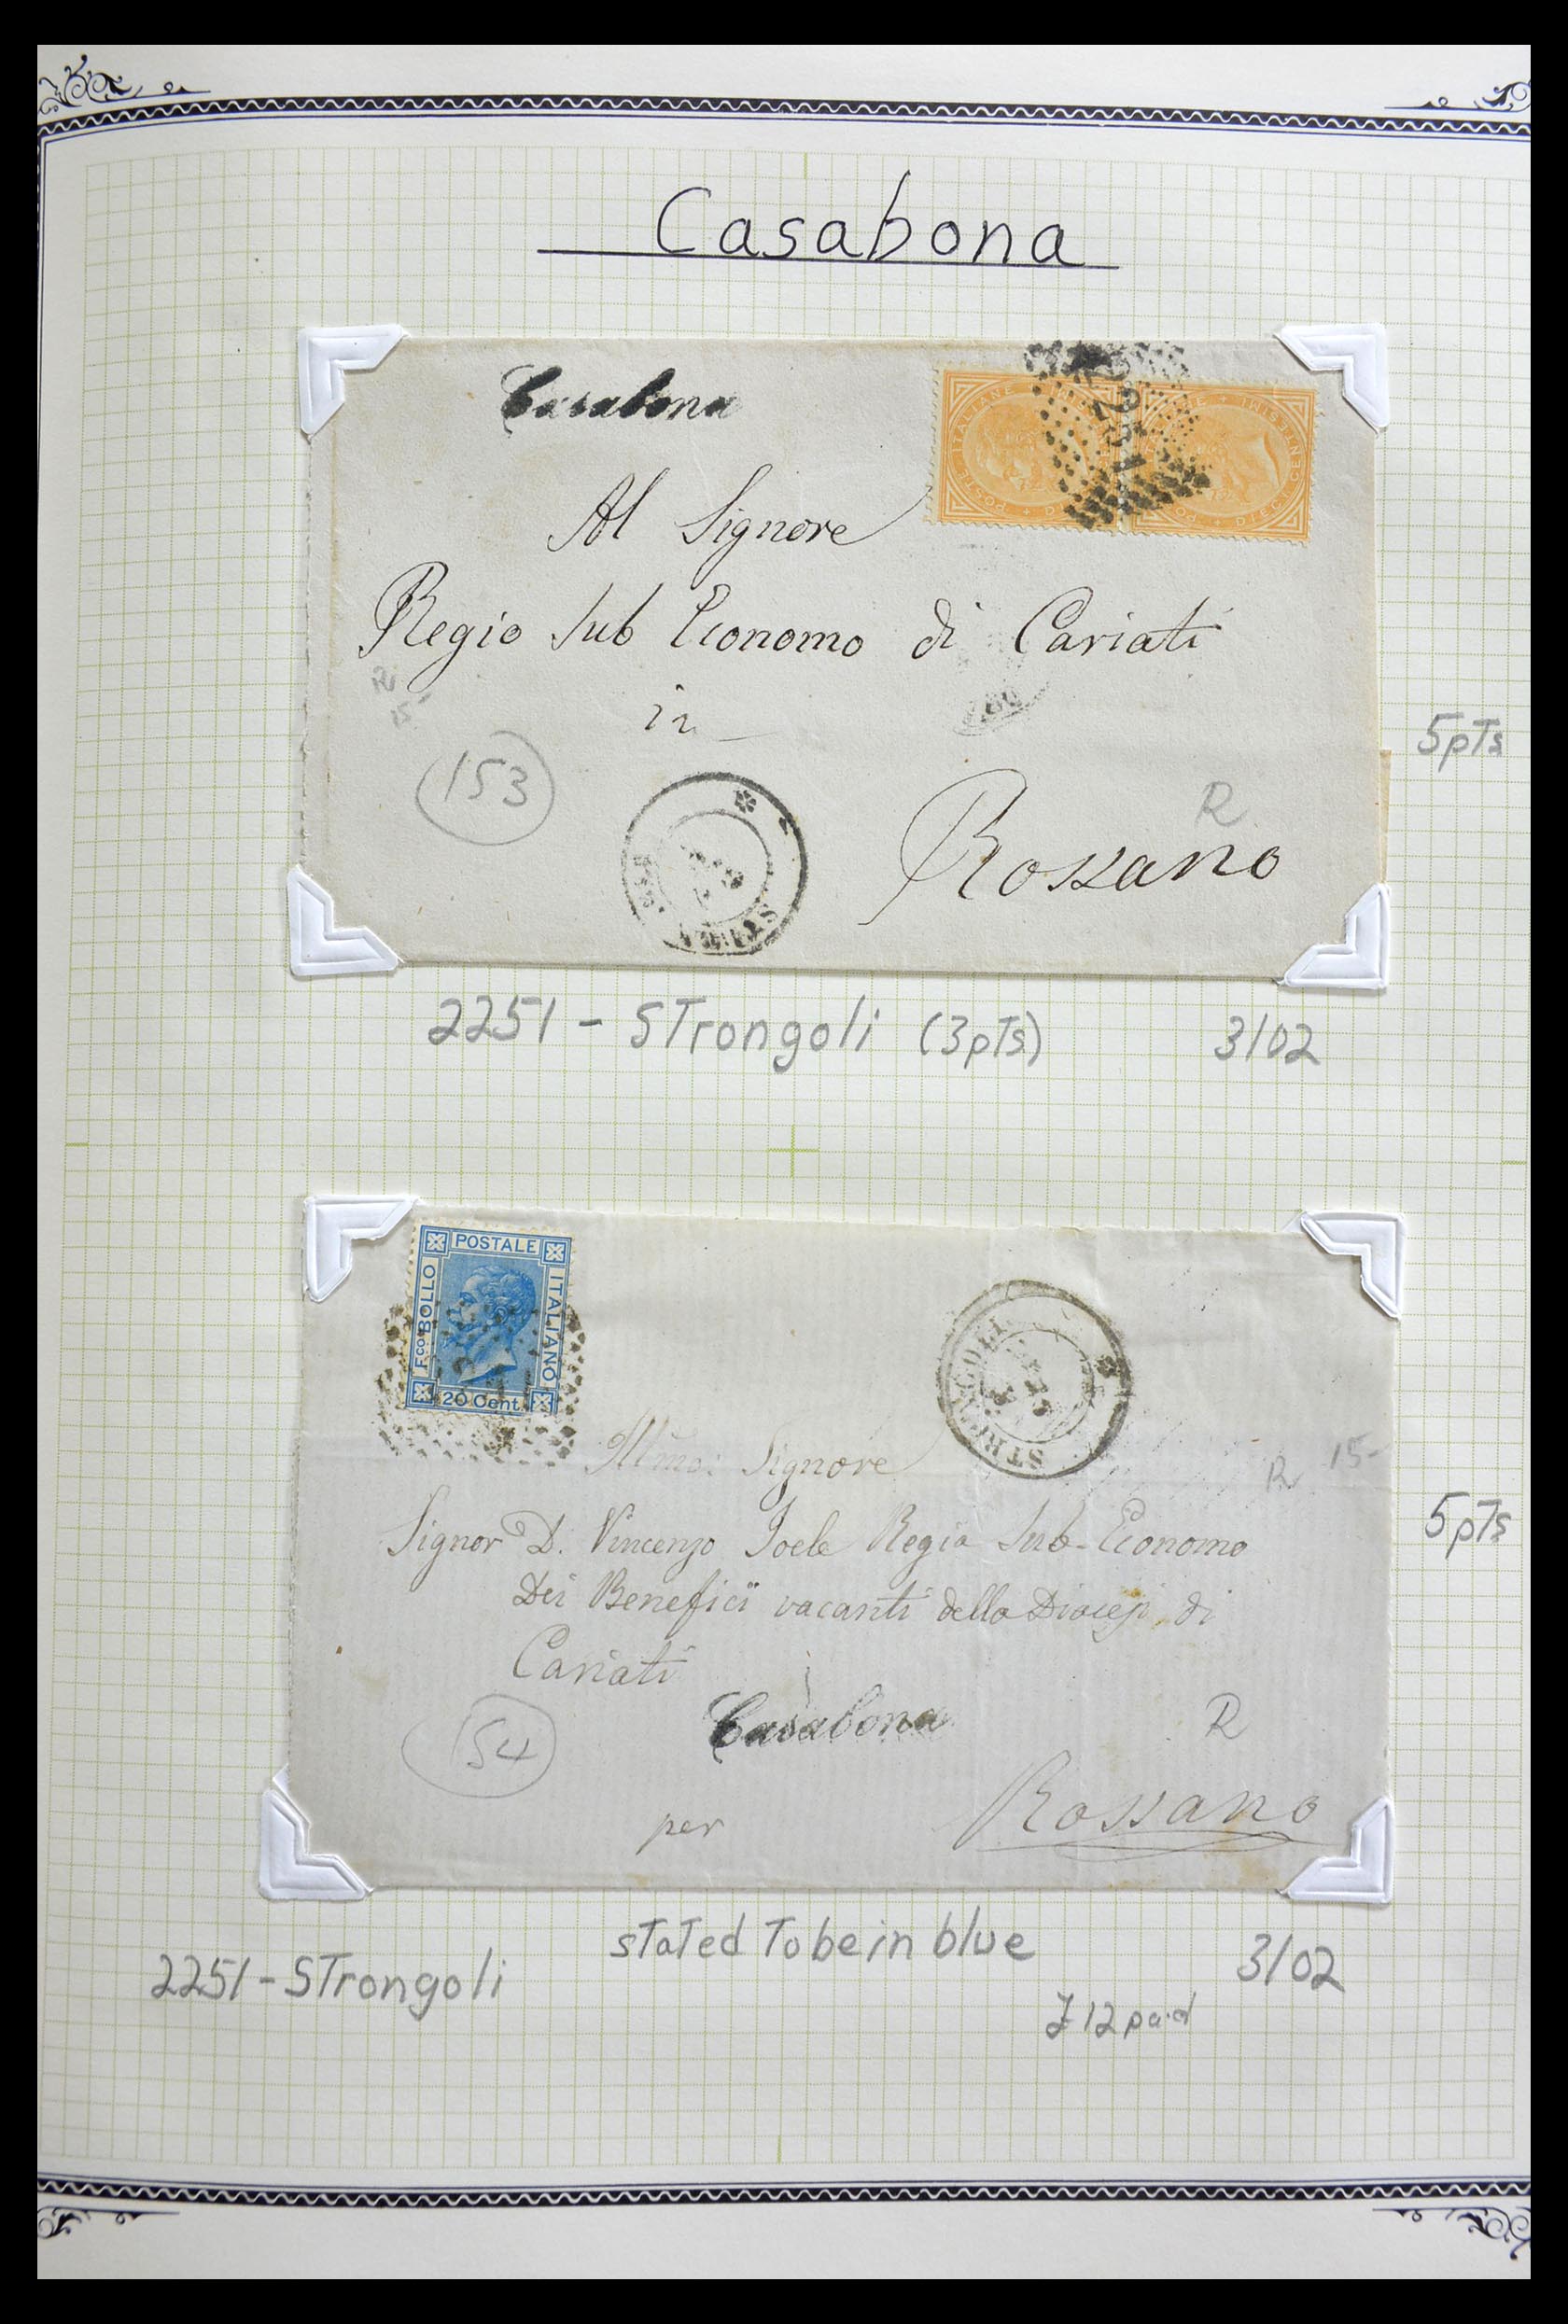 Casabona
Casabona
POSTE ITALIANE
DIECI CENTESIMI
Al Signore
Regio Sub Economo di Cariati
R
15-
in
153
R
Rossano
5pTs
2251 - STrongoli (3pTs) 3/02
POSTALE
Fco BOLLO
ITALIANO
20 Cent.
STRONGOLI
Illmo: Signore
R 15-
Signor D. Vincenzo Joele Regio Sub-Economo
Dei Benefici vacanti della Diocesi di
Cariati
Casabona
154
R
per Rossano
5pTs
stated To be in blue
2251-STrongoli 3/02
£12 paid